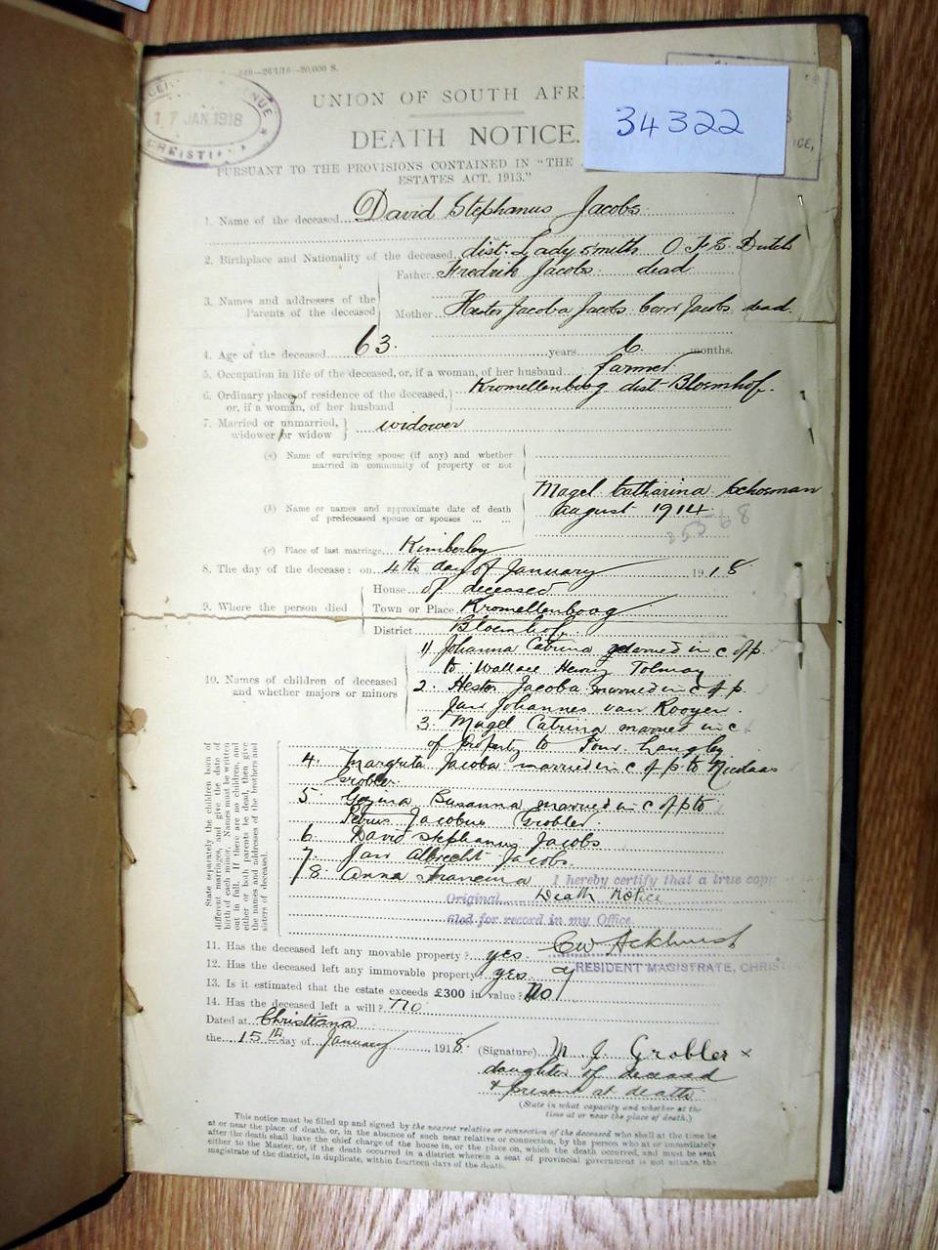 20,000 S.
17 JAN 1918
CHRISTI
34322
UNION OF SOUTH AFRI
DEATH NOTICE.
PURSUANT TO THE PROVISIONS CONTAINED IN "THE
ESTATES ACT, 1913."
1. Name of the deceased David Stephanus Jacobs
2. Birthplace and Nationality of the deceased dist. Ladysmith O F S Dutch
3. Names and addresses of the Parents of the deceased
Father Fredrik Jacobs dead
Mother Hester Jacoba Jacobs born Jacobs dead
4. Age of the deceased 63 years 6 months.
5. Occupation in life of the deceased, or, if a woman, of her husband farmer
6. Ordinary place of residence of the deceased, or, if a woman, of her husband Kromellenboog dist-Bloemhof.
7. Married or unmarried, widower or widow widower
(a) Name of surviving spouse (if any) and whether
married in community of property or not
(b) Name or names and approximate date of death
of predeceased spouse or spouses
Magel Catharina Schoeman
August 1914
(c) Place of last marriage Kimberley
8. The day of the decease: on 4th day of January 1918
9. Where the person died
House of deceased
Town or Place Kromellenboog
District Bloemhof.
10. Names of children of deceased
and whether majors or minors
1) Johanna Catrina married in c of p.
to Wallace Henry Tolmay
2. Hester Jacoba married in c of p
Jan Johannes van Rooyen.
3. Magel Catrina married in c
of property to Langley
4. Margrita Jacoba married in c of p to Nicolaas
Grobler
5. Susanna married in c of p to
Petrus Jacobus Grobler
6. David Stephanus Jacobs
7. Jan Albrecht Jacobs.
8. Anna Francina
State separately the children born of
different marriages, and give the date of
birth of each minor. Names must be written
out in full. If there are no children, and
either or both parents be dead, then give
the names and addresses of the brothers and
sisters of deceased.
I hereby certify that a true copy
Original Death Notice
filed for record in my Office.
11. Has the deceased left any movable property? yes
C W Ackhurst
RESIDENT MAGISTRATE, CHRIS
12. Has the deceased left any immovable property yes
13. Is it estimated that the estate exceeds £300 in value? No
14. Has the deceased left a will? No
Dated at Christiana
the 15th day of January 1918
(Signature) M. J. Grobler x
daughter of deceased
+ present at death
(State in what capacity and whether at the
time at or near the place of death.)
This notice must be filled up and signed by the nearest relative or connection of the deceased who shall at the time be
at or near the place of death, or, in the absence of such near relative or connection, by the person who at or immediately
after the death shall have the chief charge of the house in, or the place on, which the death occurred, and must be sent
either to the Master, or, if the death occurred in a district wherein a seat of provincial government is not situate, the
magistrate of the district, in duplicate, within fourteen days of the death.